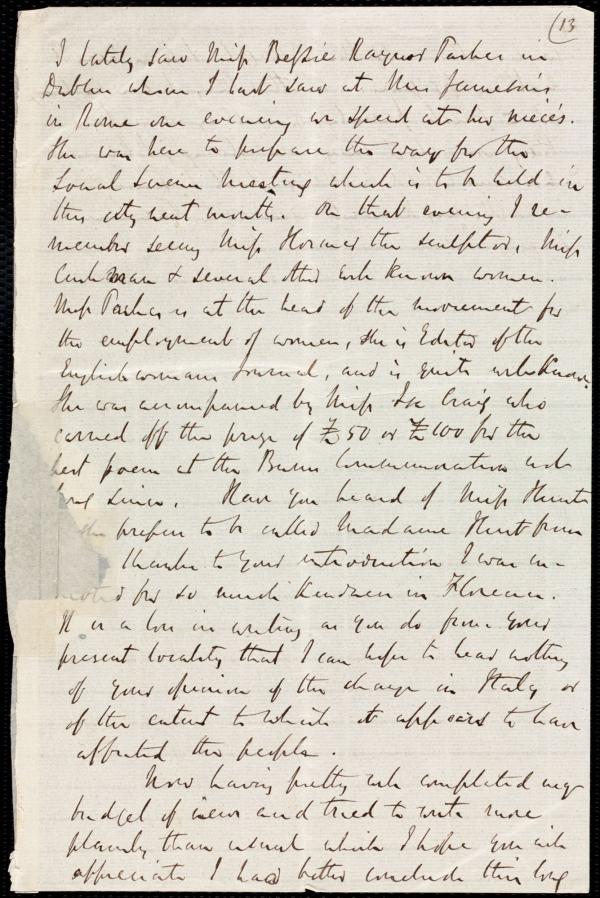 (13
I lately saw Miss Bessie Raynor Parkes in
Dublin whom I last saw at Mrs Jameson's
in Rome one evening we spent at her niece's.
She was here to prepare the way for the
Social Science Meeting which is to be held in
this city next month. On that evening I re-
member seeing Miss Hosmer the sculptor, Miss
Cushman & several other well known women.
Miss Parkes is at the head of the movement for
the employment of women, she is Editor of the
Englishwomans Journal, and is quite well known.
She was accompanied by Miss Isa Craig who
carried off the prize of £50 or £100 for the
best poem at the Burns Commemoration not
long since. Have you heard of Miss Hunt
she prefers to be called Madame Hunt from
thanks to your introduction I was in-
for so much kindness in Florence.
It is a loss in writing as you do from your
present locality that I can hope to hear nothing
of your opinion of the change in Italy or
of the extent to which it appears to have
affected the people.
Now having pretty well completed my
budget of news and tried to write more
plainly than usual which I hope you will
appreciate I had better conclude this long